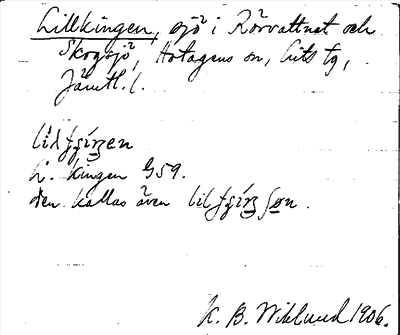 Lillkingen, sjö i Rörvattnet och
Skogsjö, Hotagens sn, Lits tg,
Jämtl. l.
L. Kingen G59.
den kallas även
K. B. Wiklund 1906.